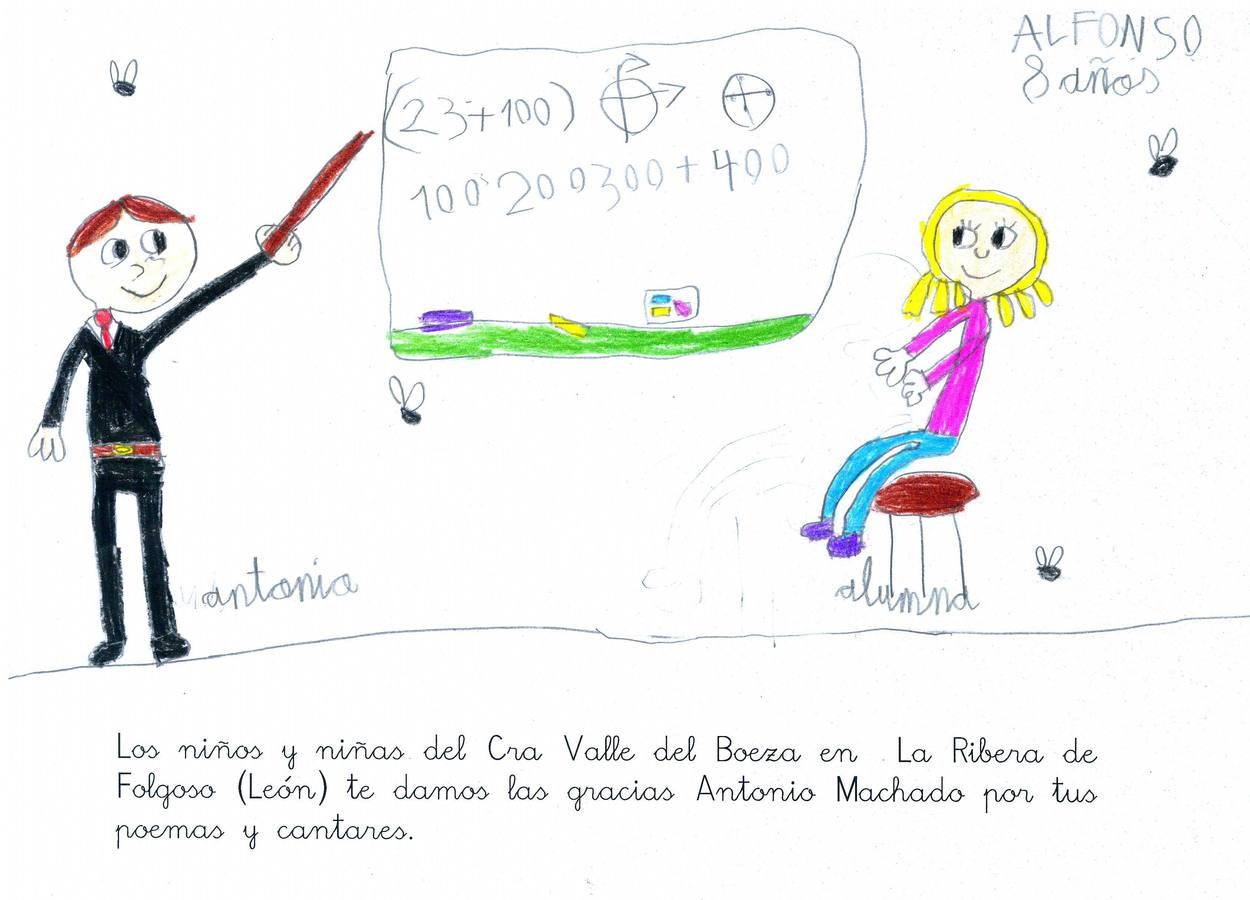 ALFONSO
8 años
(23+100)
100 200 300 + 400
antonio
alumna
Los niños y niñas del Cra Valle del Boeza en La Ribera de
Folgoso (León) te damos las gracias Antonio Machado por tus
poemas y cantares.